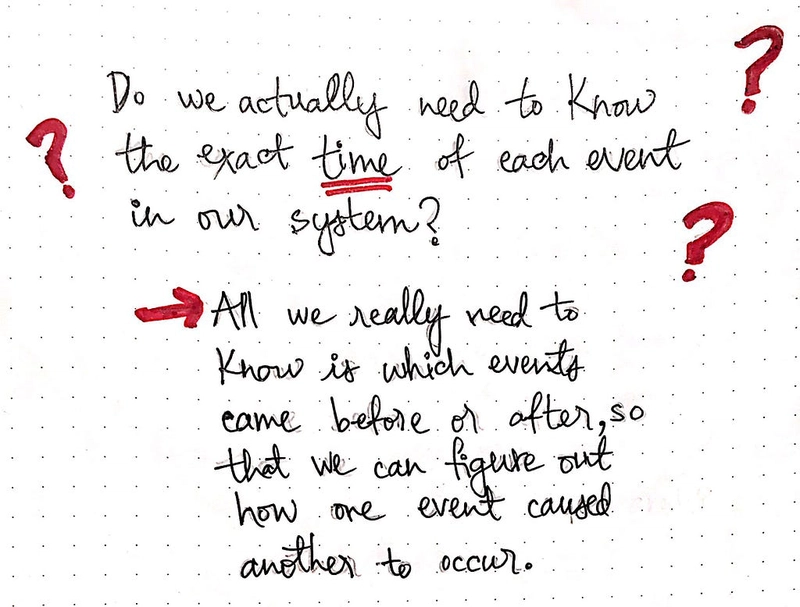 Do we actually need to know
the exact time of each event
in our system?
All we really need to
know is which events
came before or after, so
that we can figure out
how one event caused
another to occur.
?
?
?